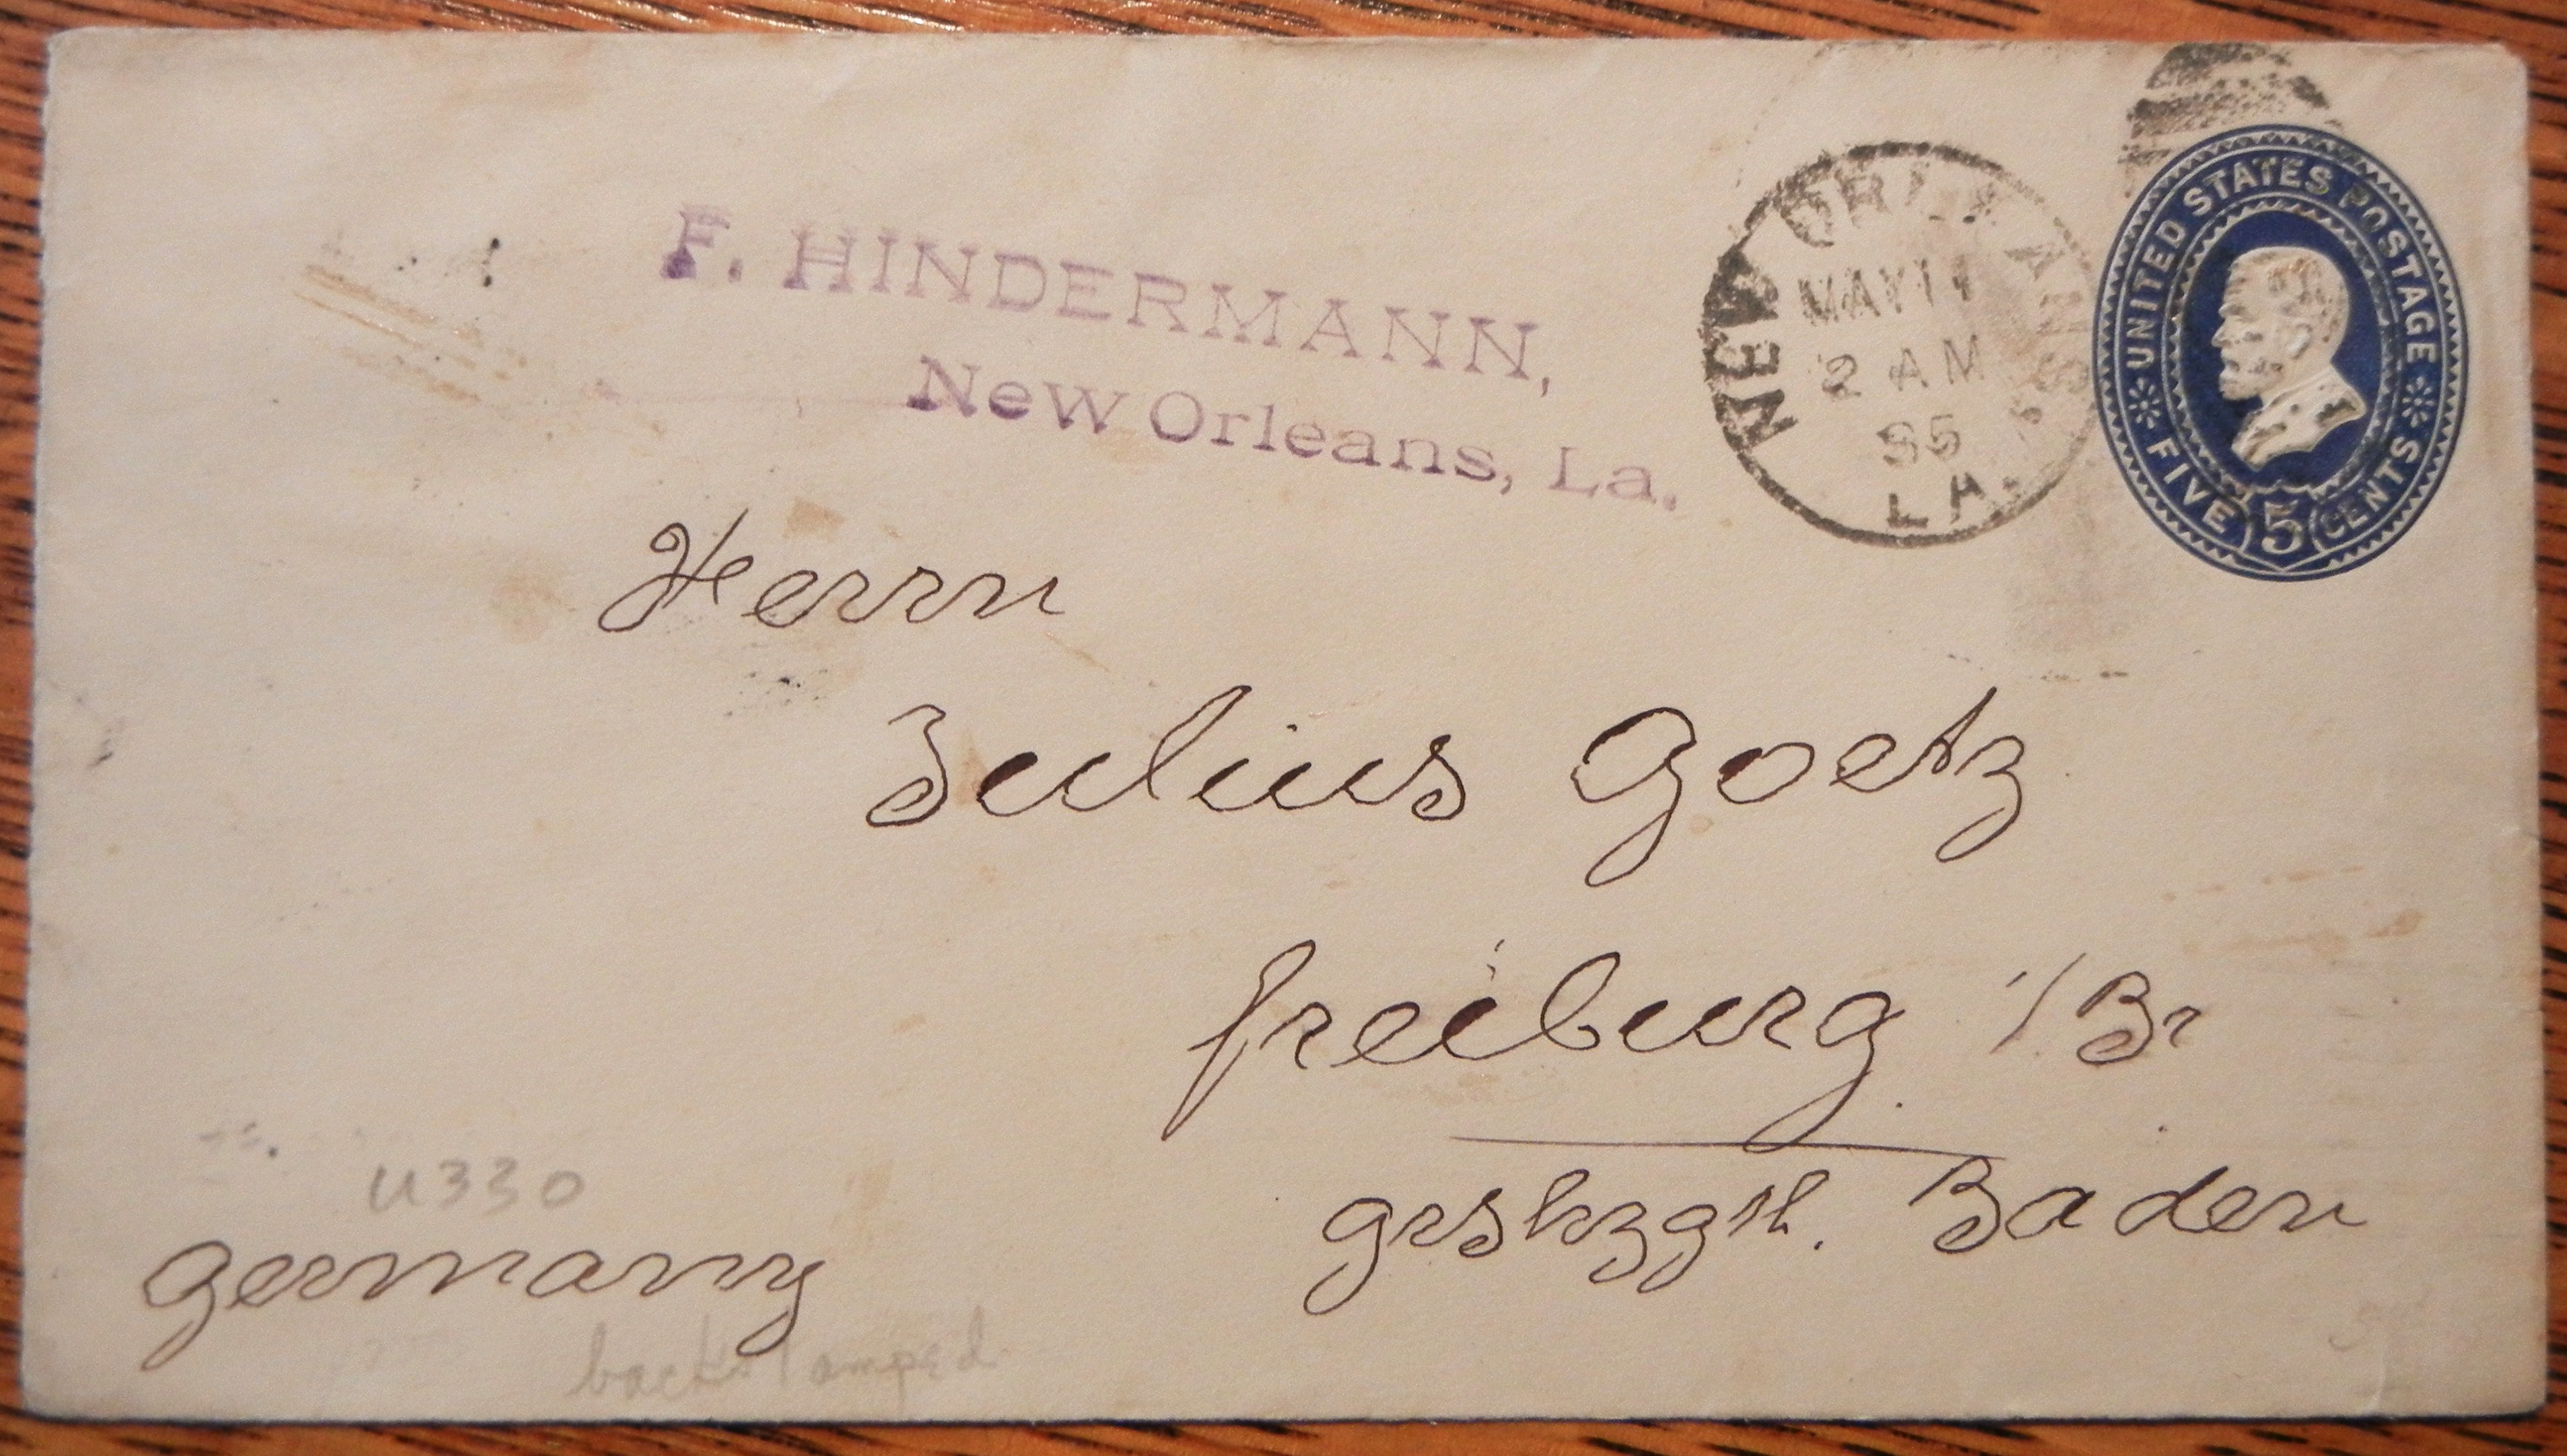 F. HINDERMANN,
New Orleans, La.
NEW ORLEANS
MAY 11
2 AM
95
LA.
UNITED STATES POSTAGE
FIVE 5 CENTS
Herrn
Julius Goetz
Freiburg i/Br
Baden
U330
Germany
backstamped